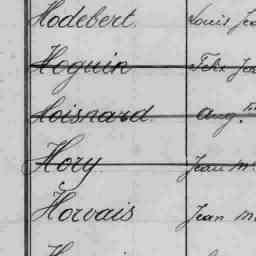 Hodebert Louis
Hoguin Felix
Hoisnard Aug.
Hory Jean M
Horvais Jean M